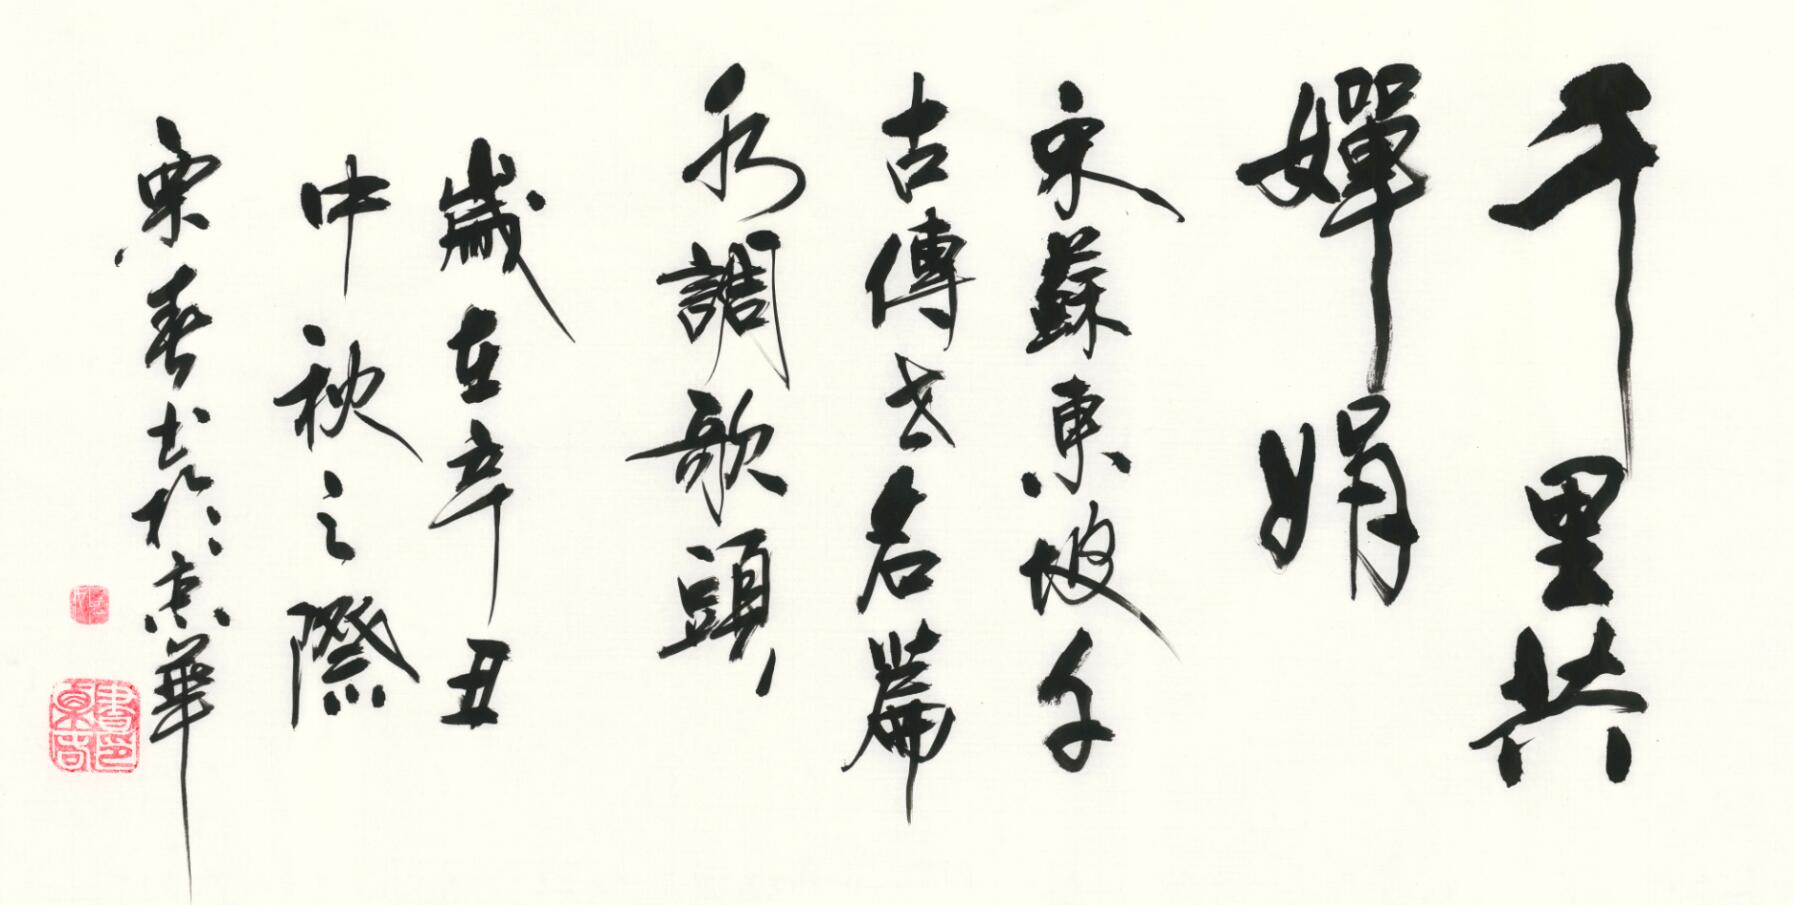 千里共
嬋娟
宋蘇東坡千
古傳世名篇
水調歌頭
歲在辛丑
中秋之際
栗春書於京華